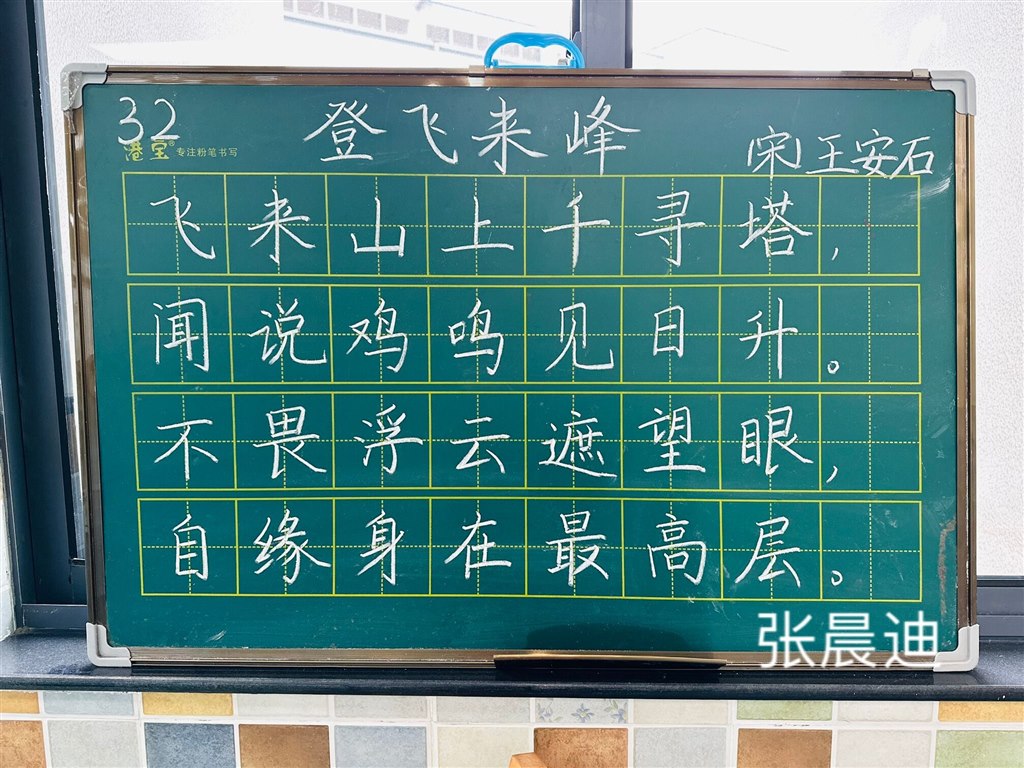 32
港宝® 专注粉笔书写
登飞来峰
宋 王安石
飞来山上千寻塔,
闻说鸡鸣见日升。
不畏浮云遮望眼,
自缘身在最高层。
张晨迪